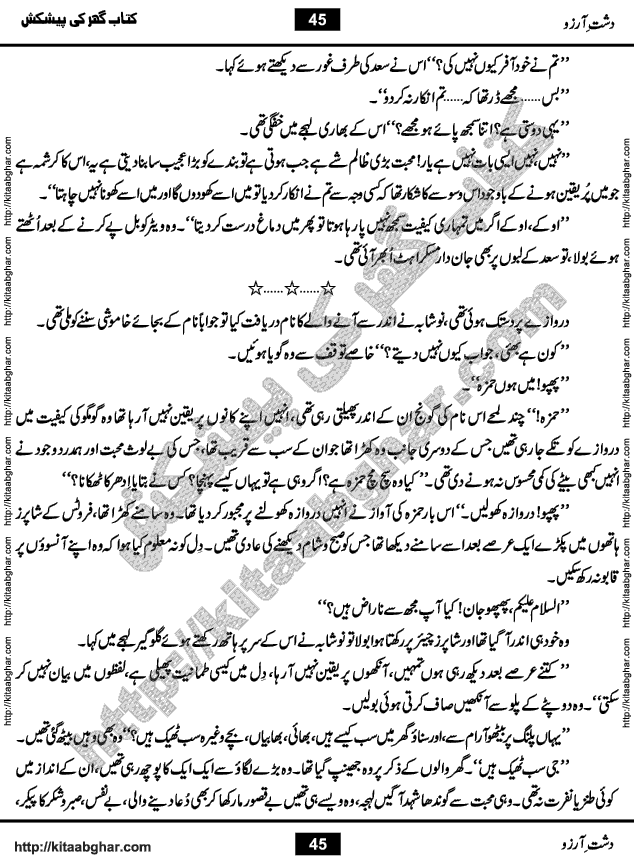 کتاب گھر کی پیشکش 45 دشتِ آرزو
’’تم نے خود آفر کیوں نہیں کی؟‘‘ اس نے سعد کی طرف غور سے دیکھتے ہوئے کہا۔
’’بس...... مجھے ڈر تھا کہ...... تم انکار نہ کر دو‘‘۔
’’یہی دوستی ہے؟ اتنا سمجھ پائے ہو مجھے؟‘‘ اس کے بھاری لہجے میں خفگی تھی۔
’’نہیں، نہیں ایسی بات نہیں ہے یار! محبت بڑی ظالم شے ہے جب ہوتی ہے تو بندے کو بڑا عجیب سا بنا دیتی ہے یہ، اس کا کرشمہ ہے
جو میں پُریقین ہونے کے باوجود اس وسوسے کا شکار تھا کہ کسی وجہ سے تم نے انکار کر دیا تو میں اسے کھو دوں گا اور میں اسے کھونا نہیں چاہتا‘‘۔
’’اوکے، اوکے اگر میں تمہاری کیفیت سمجھ نہیں پا رہا ہوتا تو پھر میں دماغ درست کر دیتا‘‘۔ وہ ویٹر کو بل پے کرنے کے بعد اُٹھتے
ہوئے بولا، تو سعد کے لبوں پر بھی جان دار مسکراہٹ اُبھر آئی تھی۔
☆......☆......☆
دروازے پر دستک ہوئی تھی، نوشابہ نے اندر سے آنے والے کا نام دریافت کیا تو جواباً نام کے بجائے خاموشی سننے کو ملی تھی۔
’’کون ہے بھئی، جواب کیوں نہیں دیتے؟‘‘ خاصے توقف سے وہ گویا ہوئیں۔
’’پھپو! میں ہوں حمزہ‘‘۔
’’حمزہ!‘‘ چند لمحے اس نام کی گونج ان کے اندر پھیلتی رہی تھی، انہیں اپنے کانوں پر یقین نہیں آ رہا تھا وہ گومگو کی کیفیت میں
دروازے کو تکے جا رہی تھیں جس کے دوسری جانب وہ کھڑا تھا جو ان کے سب سے قریب تھا، جس کی بے لوث محبت اور ہمدرد وجود نے
انہیں کبھی بیٹے کی کمی محسوس نہ ہونے دی تھی۔ ’’کیا وہ سچ مچ حمزہ ہے؟ اگر وہی ہے تو یہاں کیسے پہنچا؟ کس نے بتایا اِدھر کا ٹھکانا؟‘‘
’’پھپو! دروازہ کھولیں‘‘۔ اس بار حمزہ کی آواز نے انہیں دروازہ کھولنے پر مجبور کر دیا تھا۔ وہ سامنے کھڑا تھا، فروٹس کے شاپرز
ہاتھوں میں پکڑے ایک عرصے بعد اسے سامنے دیکھا تھا جس کو صبح و شام دیکھنے کی عادی تھیں۔ دِل کو نہ معلوم کیا ہوا کہ وہ اپنے آنسوؤں پر
قابو نہ رکھ سکیں۔
’’السلام علیکم، پھپھو جان! کیا آپ مجھ سے ناراض ہیں؟‘‘
وہ خود ہی اندر آ گیا تھا اور شاپرز چیئر پر رکھتا ہوا بولا تو نوشابہ نے اس کے سر پر ہاتھ رکھتے ہوئے گلوگیر لہجے میں کہا۔
’’کتنے عرصے بعد دیکھ رہی ہوں تمہیں، آنکھوں پر یقین نہیں آ رہا، دِل میں کیسی طمانیت پھیلی ہے، لفظوں میں بیان نہیں کر
سکتی‘‘۔ وہ دوپٹے کے پلو سے آنکھیں صاف کرتی ہوئی بولیں۔
’’یہاں پلنگ پر بیٹھو آرام سے، اور سناؤ گھر میں سب کیسے ہیں، بھائی، بھابیاں، بچے وغیرہ سب ٹھیک ہیں؟‘‘ وہ بھی وہیں بیٹھ گئی تھیں۔
’’جی سب ٹھیک ہیں‘‘۔ گھر والوں کے ذکر پر وہ جھینپ گیا تھا۔ وہ بڑے لگاؤ سے ایک ایک کا پوچھ رہی تھیں، ان کے انداز میں
کوئی طنز یا نفرت نہ تھی۔ وہی محبت سے گوندھا شہد آگیں لہجہ، وہ ویسے ہی تھیں بے قصور مار کھا کر بھی دُعا دینے والی، بے نفس، صبر و شکر کا پیکر،
http://kitaabghar.com 45 دشتِ آرزو
http://kitaabghar.com
http://kitaabghar.com
http://kitaabghar.com
http://kitaabghar.com
http://kitaabghar.com
http://kitaabghar.com
http://kitaabghar.com
http://kitaabghar.com
http://kitaabghar.com
http://kitaabghar.com
http://kitaabghar.com
http://kitaabghar.com
کتاب گھر کی پیشکش
http://kitaabghar.com